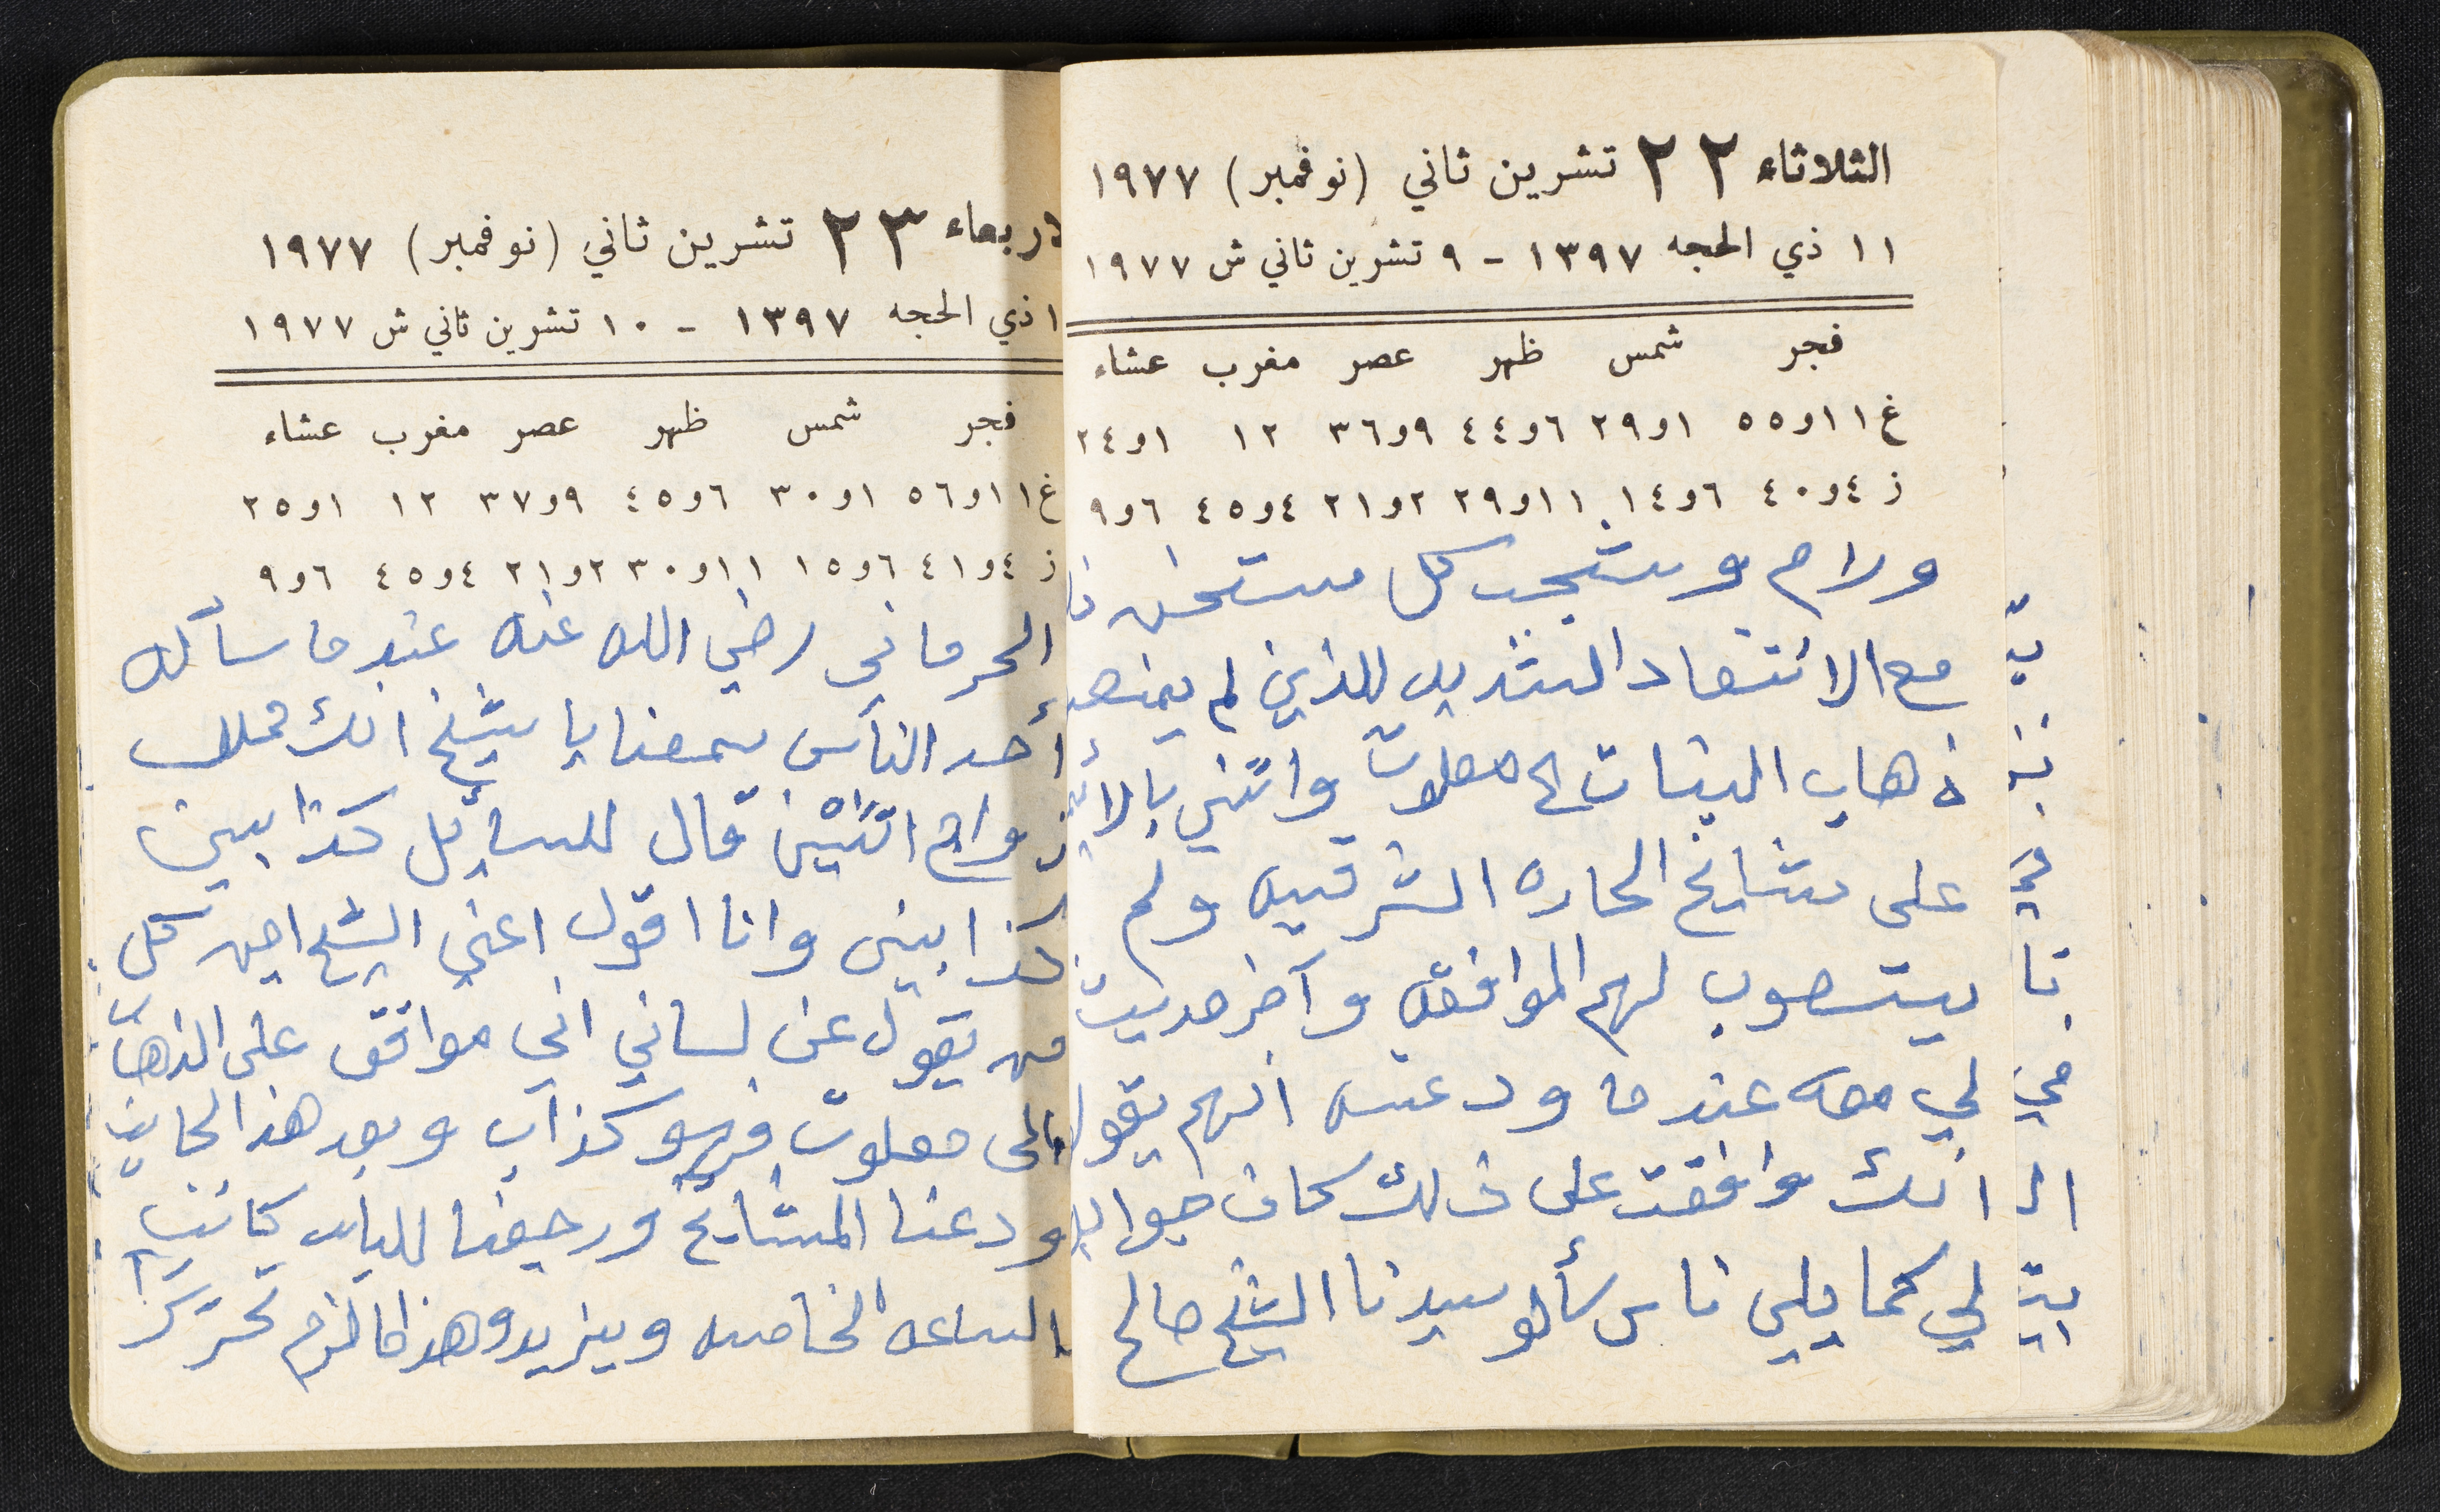 الثلاثاء ٢٢ تشرين ثاني (نوفمبر) ١٩٧٧
١١ ذي الحجه ١٣٩٧ - ٩ تشرين ثاني ش ١٩٧٧
فجر شمس ظهر عصر مغرب عشاء
غ ١١و٥٥ ١و٢٩ ٦و٤٤ ٩و٣٦ ١٢ ١و٢٤
ز ٤و٤٠ ٦و١٤ ١١و٢٩ ٢و٢١ ٤و٤٥ ٦و٩
ولام وشجب كل
مع الانتقاد الشديد للذين لم
ذهاب البنات الى معلوت واتني
على مشايخ الحاره الشرقيه ولم
يستصوب لهم الموافقه وآخر حديث
لي معه عندما ودعته انهم يقولو
انك وافقت على ذلك كان جوابه
لي كما يلي ناس سألو سيدنا الشيخ صالح
اربعاء ٢٣ تشرين ثاني (نوفمبر) ١٩٧٧
١ ذي الحجه ١٣٩٧ - ١٠ تشرين ثاني ش ١٩٧٧
فجر شمس ظهر عصر مغرب عشاء
غ ١١و٥٦ ١و٣٠ ٦و٤٥ ٩و٣٧ ١٢ ١و٢٥
ز ٤و٤١ ٦و١٥ ١١و٣٠ ٢و٢١ ٤و٤٥ ٦و٩
الحرماني رضي الله عنه عندما سأله
أحد الناس سمعنا يا شيخ انك محلل
زواج اتنين قال للسايل كذابين
كذابين وانا اقول اعني الشيخ امين كل
من يقول عن لساني اني موافق على الذهاب
الى معلوت فهو كذاب وبعد هذا
ودعنا المشايخ ورجعنا للبلد كانت
الساعه الخامسه ويزيد وهذا ما لزم تحريراً